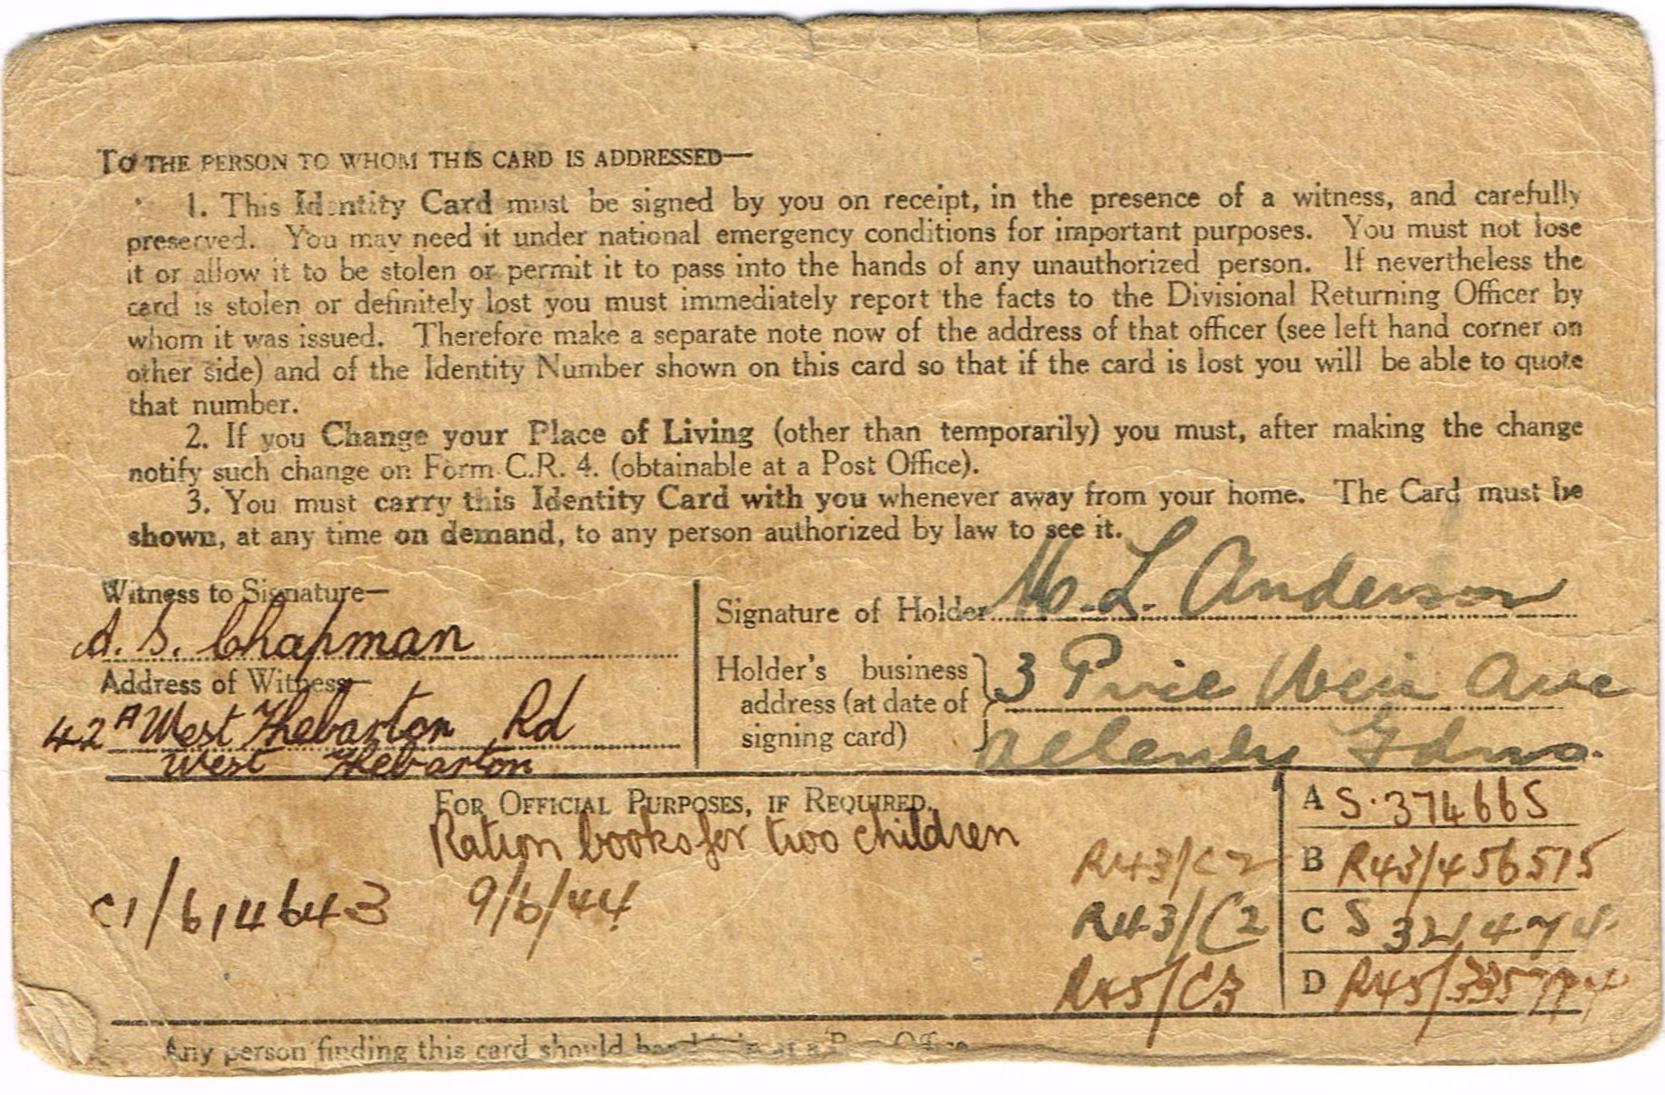 TO THE PERSON TO WHOM THIS CARD IS ADDRESSED—
1. This Identity Card must be signed by you on receipt, in the presence of a witness, and carefully
preserved. You may need it under national emergency conditions for important purposes. You must not lose
it or allow it to be stolen or permit it to pass into the hands of any unauthorized person. If nevertheless the
card is stolen or definitely lost you must immediately report the facts to the Divisional Returning Officer by
whom it was issued. Therefore make a separate note now of the address of that officer (see left hand corner on
other side) and of the Identity Number shown on this card so that if the card is lost you will be able to quote
that number.
2. If you Change your Place of Living (other than temporarily) you must, after making the change
notify such change on Form C.R. 4. (obtainable at a Post Office).
3. You must carry this Identity Card with you whenever away from your home. The Card must be
shown, at any time on demand, to any person authorized by law to see it.
Witness to Signature—
A. S. Chapman
Address of Witness—
42A West Thebarton Rd
West Thebarton
Signature of Holder L. Anderson
Holder's business address (at date of signing card)
3 Ave
Gdns.
FOR OFFICIAL PURPOSES, IF REQUIRED.
Ration books for two children
C1/614643 9/6/44
R43/C2
R43/C2
R45/C3
A S.374665
B R43/456515
C S
D
Any person finding this card should